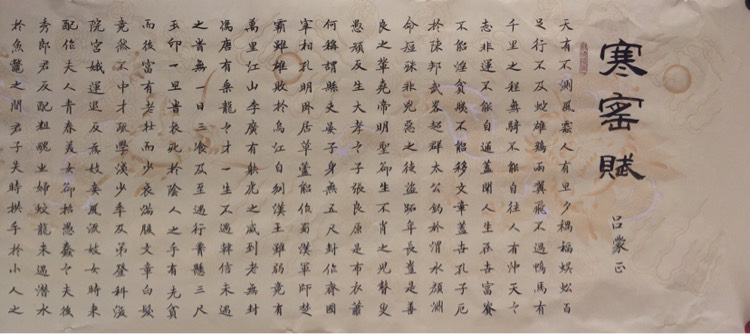 寒窰賦
吕蒙正
天有不測風雲人有旦夕禍福蜈蚣百
足行不及蛇雄鷄兩翼飛不過鴨馬有
千里之程無騎不能自往人有沖天々
志非運不能自通蓋聞人生在世富貴
不能淫貧賤不能移文章蓋世孔子厄
於陳邦武畧超群太公釣於渭水顏淵
命短殊非兇惡之徒盜跖年長豈是善
良之輩堯帝明聖卻生不肖之兒瞽叟
愚頑反生大孝々子張良原是布衣蕭
何稱謂縣吏晏子身無五尺封作齊國
宰相孔明卧居草蘆能作蜀漢軍師楚
霸雖雄敗於烏江自刎漢王雖弱竟有
萬里江山李廣有射虎之威到老無封
馮唐有乘龍々才一生不遇韓信未遇
之時無一日三飡及至遇行腰懸三尺
玉印一旦時衰死於陰人之手有先貧
而後富有老壯而少衰滿腹文章白髮
竟然不中才疏學淺少年及第登科深
院宮娥運退反爲妓妾風流妓女時來
配作夫人青春美女卻招愚蠢々夫俊
秀郎君反配粗醜之婦蛟龍未遇潛水
於魚鱉之間君子失時拱手於小人之